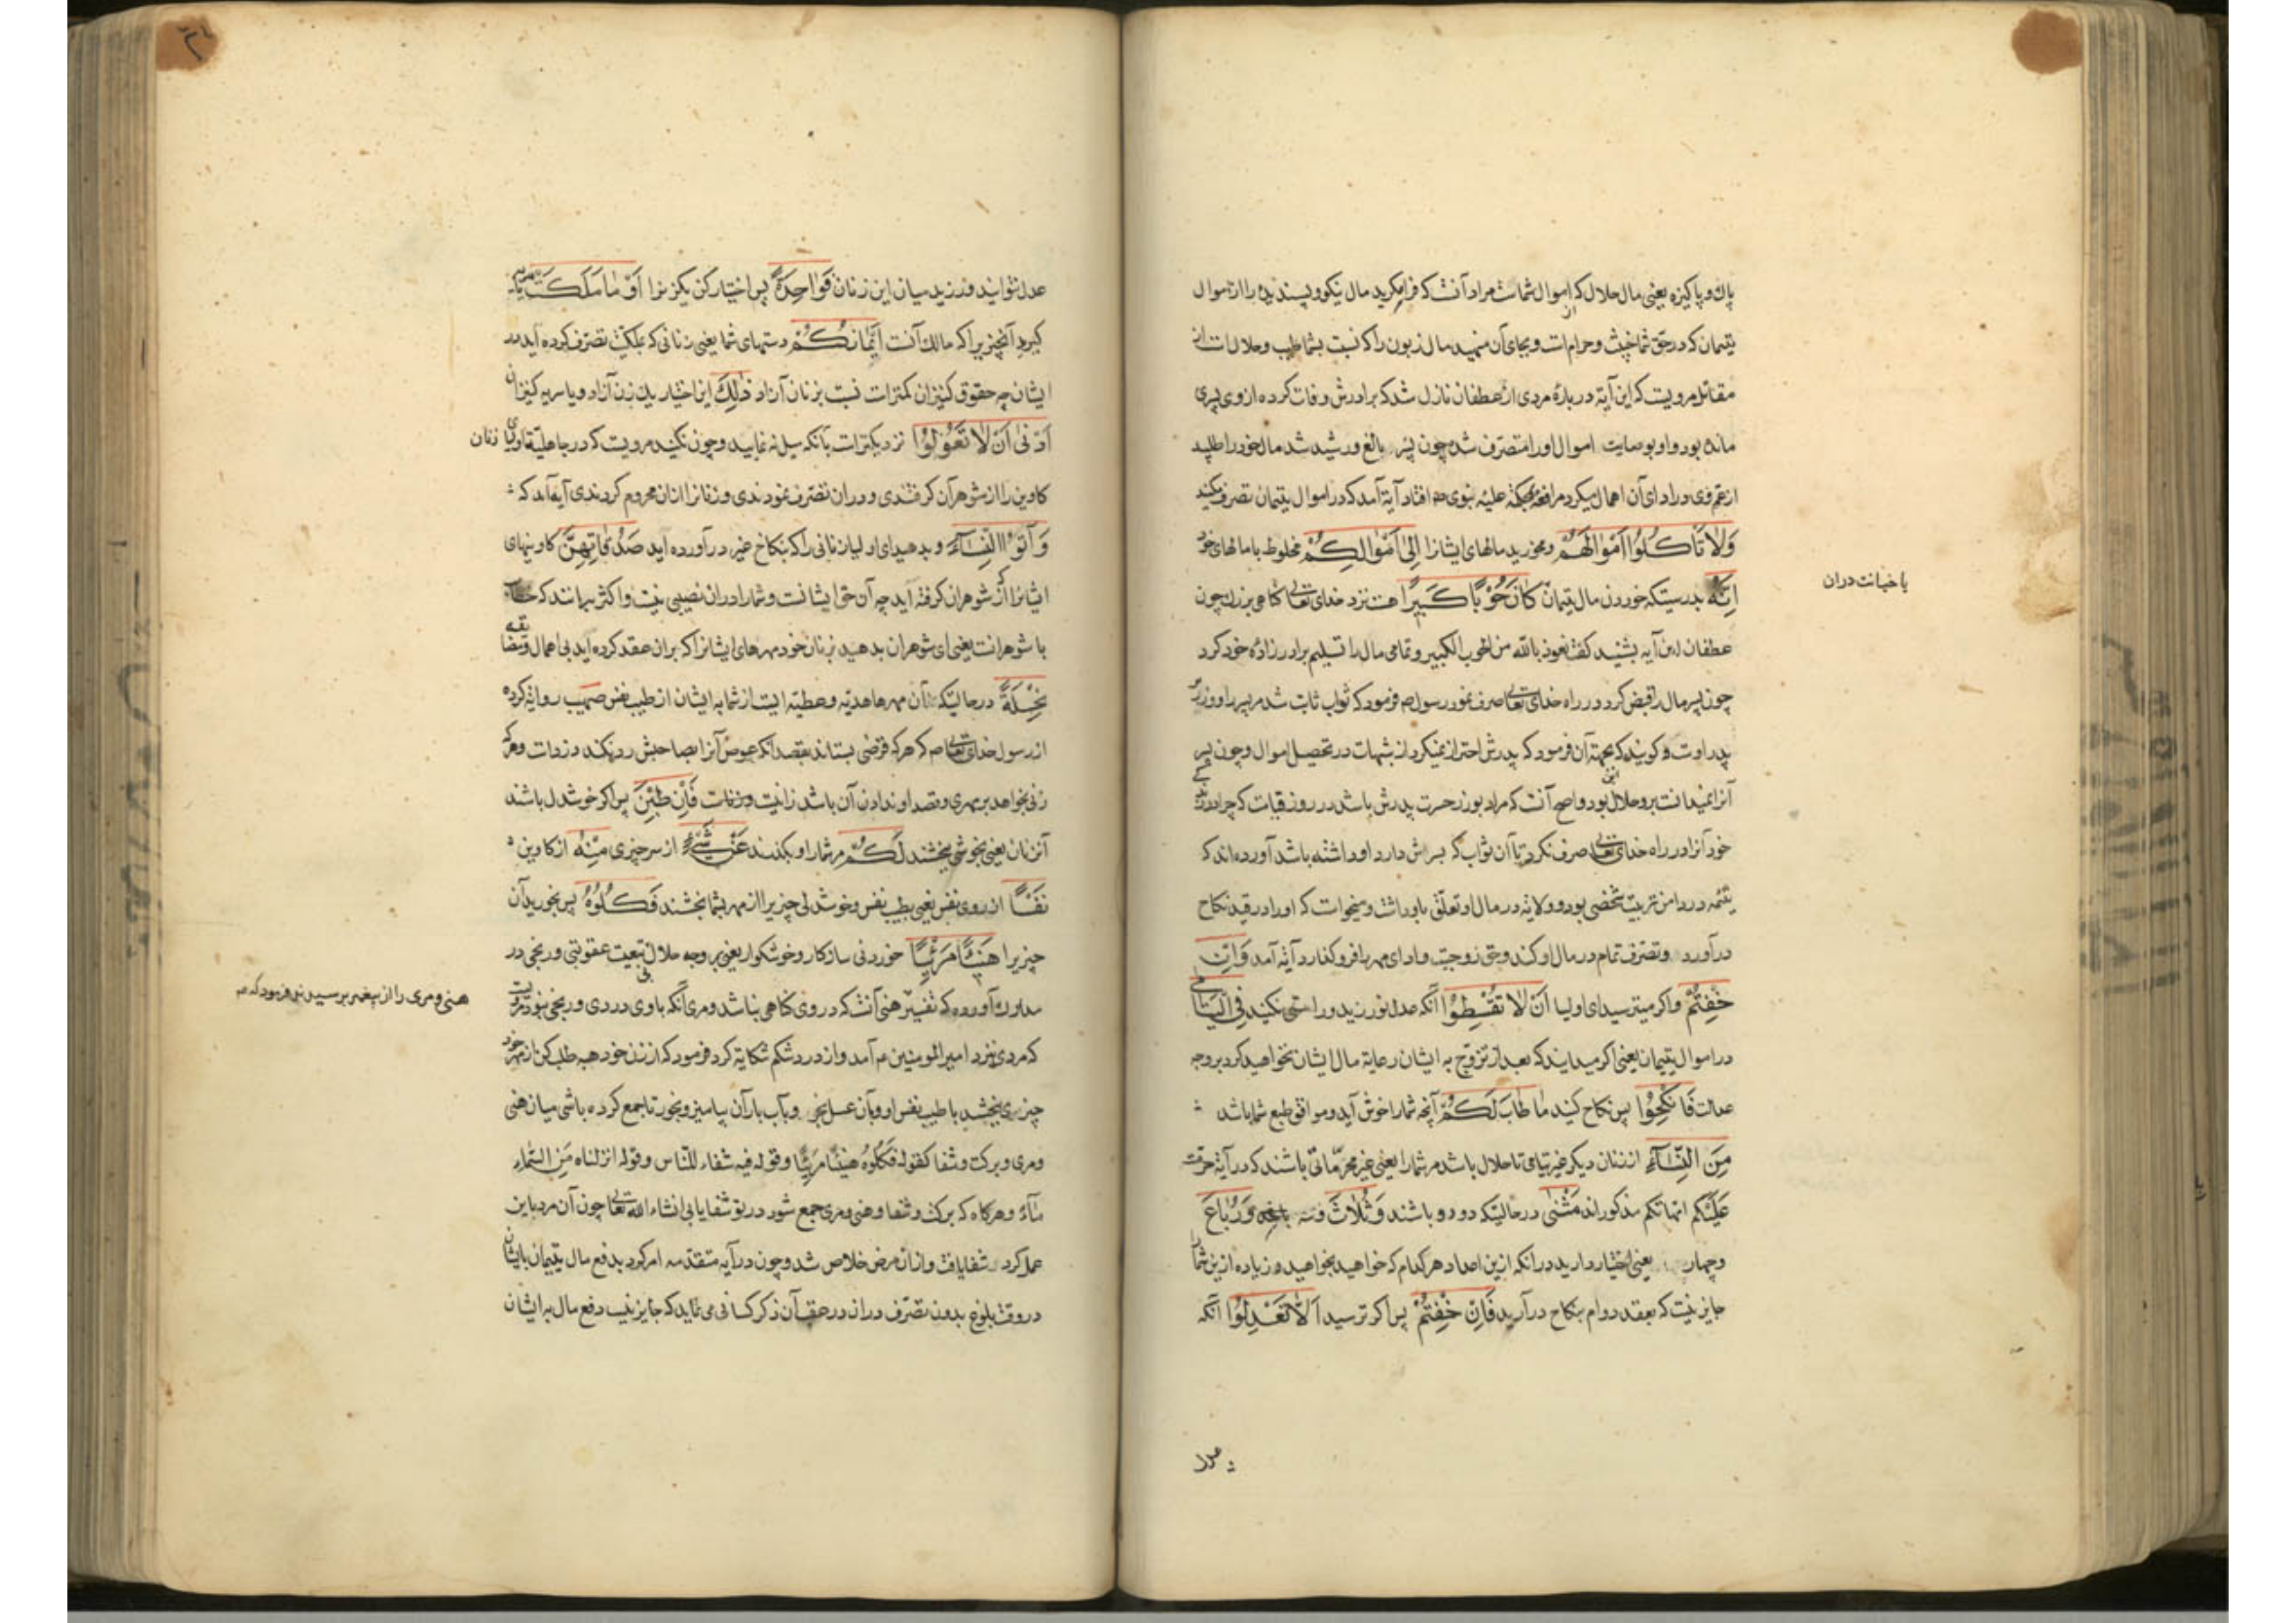 پاك و پاكیزه یعنی مال حلال كه اموال شماست مراد آنست كه فرا مگیرید مال نیكو و پسندیده را از اموال
یتیمان كه در حق شما خبیث و حرام است و بجای آن منهید مال زبون را كه نسبت بشما طیب و حلال است از
مقاتل مرویست كه این آیة در بارهٔ مردی از عطفان نازل شد كه برادرش وفات كرده از وی پسری
مانده بود و او بوصایت اموال او را متصرف شده چون پسر بالغ و رشید شد مال خود را طلبید
از عم وی در ادای آن اهمال میكرد مرافعه بمحكمهٔ علیهٔ نبوی صم افتاد آیة آمد كه در اموال یتیمان تصرف مكنید
وَلاٰ تَأكُلُوا اَمْوٰالَهُمْ و مخورید مالهای ایشانرا اِلىٰ اَمْوٰالِكُمْ مخلوط با مالهای خود
یا خیانت دران
اِنَّهُ بدرستیكه خوردن مال یتیمان كٰانَ حُوْبًا كَبِیرًا هست نزد خدای تعالی گناهی بزرك چون
عطفان این آیه بشنید گفت نعوذ بالله من الحوب الكبیر و تمامی مال را تسلیم برادرزادهٔ خود كرد
چون پسر مال را قبض كرد و در راه خدای تعالی صرف نمود رسول صم فرمود كه ثواب ثابت شد مر پسر را و وزر بر
پدر اوست و گویند كه بجهة آن فرمود كه پدرش احتراز نمیكرد از شبهات در تحصیل اموال و چون پسر
آنرا نمیدانست برو حلال بود و اصح آنست كه مراد بوزر حسرت پدرش باشد در روز قیامت كه چرا در زندگی
خود آنرا در راه خدای تعالی صرف نكرد تا آن ثواب كه پسرش دارد او داشته باشد آورده‌اند كه
یتیمه در دامن تربیت شخصی بود و ولایة در مال او تعلق باو داشت و میخواست كه او را در قید نكاح
درآورد و تصرف تمام در مال او كند و حق زوجیت و ادای مهر را فرو گذارد آیة آمد وَاِنْ
خِفْتُمْ و اگر میترسید ای اولیا اَنْ لاٰ تُقْسِطُوْا آنكه عدل نورزید و راستی نكنید فِی الْیَتٰامىٰ
در اموال یتیمان یعنی اگر میدانید كه بعد از تزوج به ایشان رعایة مال ایشان نخواهید كرد بر وجه
عدالت فَانْكِحُوْا پس نكاح كنید مٰا طٰابَ لَكُمْ آنچه شما را خوش آید و موافق طبع شما باشد
مِنَ النِّسٰآءِ از زنان دیگر غیر یتامی تا حلال باشد مر شما را یعنی غیر محرماتی باشند كه در آیة حرمت
عَلَیْكُم امهاتكم مذكوراند مَثْنىٰ در حالتیكه دو دو باشند وَثُلاٰثَ و سه وَرُبٰاعَ
و چهار یعنی اختیار دارید در آنكه ازین اعداد هر كدام كه خواهید بخواهید و زیاده ازین شما را
جایز نیست كه بعقد دوام بنكاح درآرید فَاِنْ خِفْتُمْ پس اگر ترسید اَلاّٰ تَعْدِلُوْا آنكه
عدل
عدل نتوانید ورزید میان این زنان فَوٰاحِدَةً پس اختیار كن یك زنرا اَوْ مٰا مَلَكَتْ
گیرد آنچیزیرا كه مالك آنست اَیْمٰانُكُمْ دستهای شما یعنی زنانی كه بملكیت تصرف كرده آید در
ایشان چه حقوق كنیزان كمتر است نسبت بزنان آزاد ذٰلِكَ این اختیار یك زن آزاد و یا سریه كنیزان
اَدْنىٰ اَنْ لاٰ تَعُوْلُوْا نزدیكتر است بآنكه میل نه نمایید و چون نكنید مرویست كه در جاهلیة اولیای زنان
كاوین را از شوهران گرفتندی و دران تصرف نمودندی و زنانرا ازان محروم گردندی آیة آمد كه
وَآتُوا النِّسٰآءَ و بدهید ای اولیا زنانی را كه بنكاح غیر درآورده آید صَدُقٰاتِهِنَّ كاوینهای
ایشانرا كه از شوهران گرفته آید چه آن حق ایشانست و شما را دران نصیبی نیست و اكثر برانند كه خطاب
با شوهرانست یعنی ای شوهران بدهید بزنان خود مهرهای ایشانرا كه بران عقد كرده آید بی اهمال و نقصان
نِحْلَةً در حالتیكه آن مهرها هدیه و عطیه ایست از شما به ایشان از طیب نفس صهیب روایة كرده
از رسول خدای تعالی صم كه هر كه قرضی بستاند بقصد آنكه عوض آنرا بصاحبش رد نكند دزد است و هر كه
زنی بخواهد بر مهری و قصد او ندادن آن باشد زانیست فَاِنْ طِبْنَ پس اگر خوشدل باشند
آن زنان یعنی بخوشی ببخشند لَكُمْ مر شما را و بگذرند عَنْ شَیْءٍ از سر چیزی مِنْهُ از كاوین
نَفْسًا از روی نفس یعنی بطیب نفس و خوشدلی چیزیرا از مهر بشما بخشند فَكُلُوْهُ پس بخورید آن
چیزیرا هَنِیْئًا مَرِیْئًا خوردنی سازكار و خوشگوار یعنی بر وجه حلال بی تبعیت عقوبتی و رنجی در
مدارك آورده كه تفسیر هنی آنست كه در وی گناهی نباشد و مری آنكه باوی دردی و رنجی نبود مرویست
هنی و مری را از پیغمبر پرسیدند فرمود كه
كه مردی نزد امیر المومنین عم آمد و از درد شكم شكایة كرد فرمود كه از زن خود هبه طلب كن از مهر خود
چیزی ببخشد با طیب نفس او و بآن عسل بخر و بآب باران بیامیز و بخور تا جمع كرده باشی میان هنی
و مری و بركت و شفا كقوله فَكُلُوْهُ هنیئًا مریئًا و قوله فیه شفاء للناس و قوله انزلناه مِنَ السَّمٰاءِ
مٰاءً و هر گاه كه بركت و شفا و هنی و مری جمع شود در تو شفا یابی انشاء الله تعالی چون آن مرد باین
عمل كرد شفا یافت و ازان مرض خلاص شد و چون در آیه متقدمه امر كرد بدفع مال یتیمان بایشان
در وقت بلوغ بدون تصرف دران در عقب آن ذكر كسانی می نماید كه جایز نیست دفع مال به ایشان